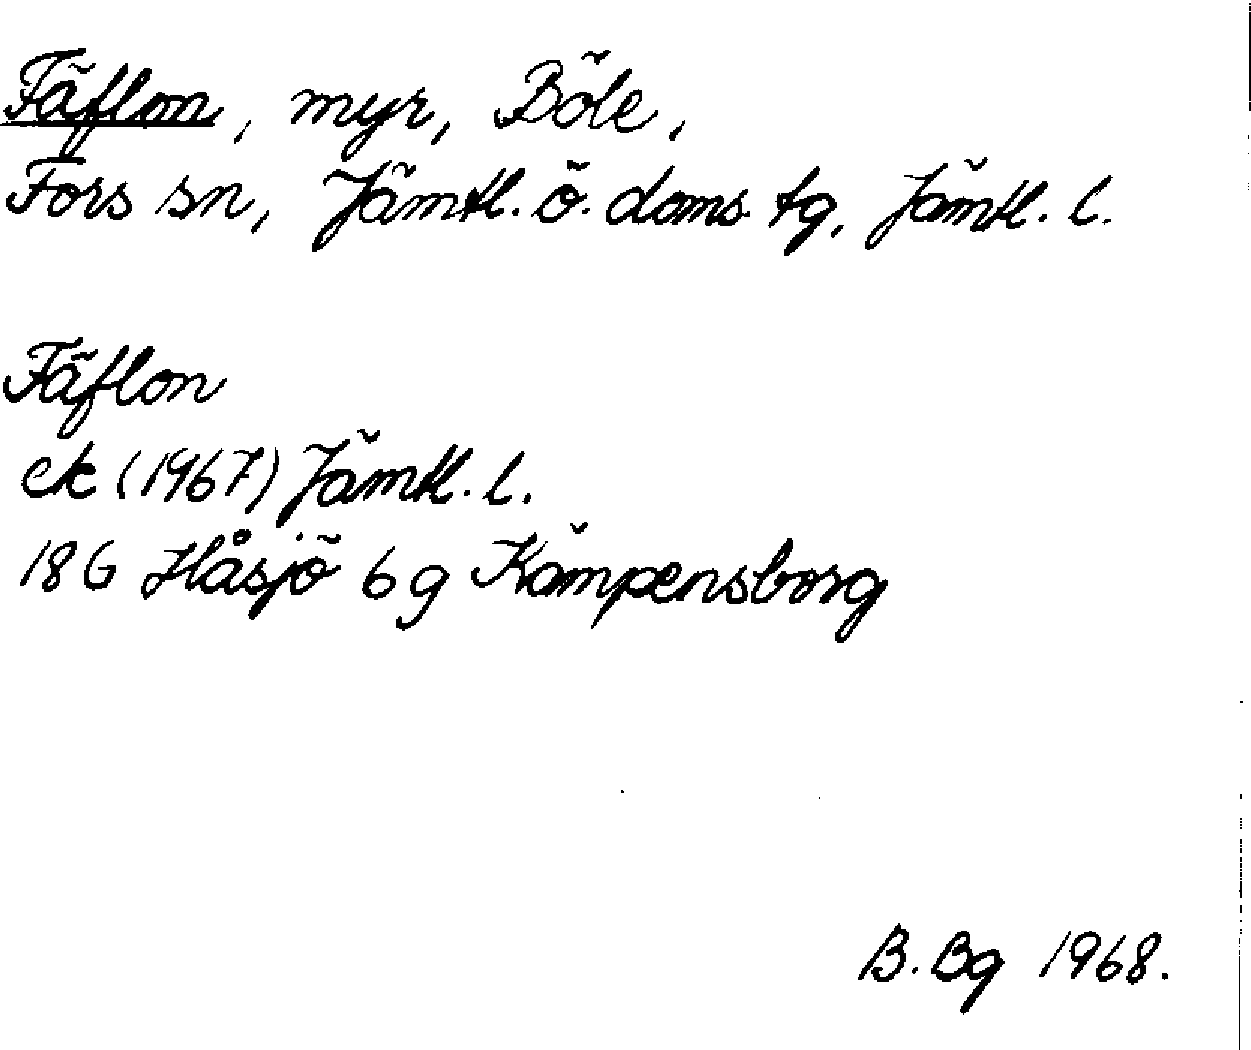 Fäflon, myr, Böle,
Fors sn, Jämtl. ö. doms. tg, Jämtl. l.
Fäflon
ek (1967) Jämtl. l.
18G Håsjö 6g Kämpensborg
B. Bg 1968.